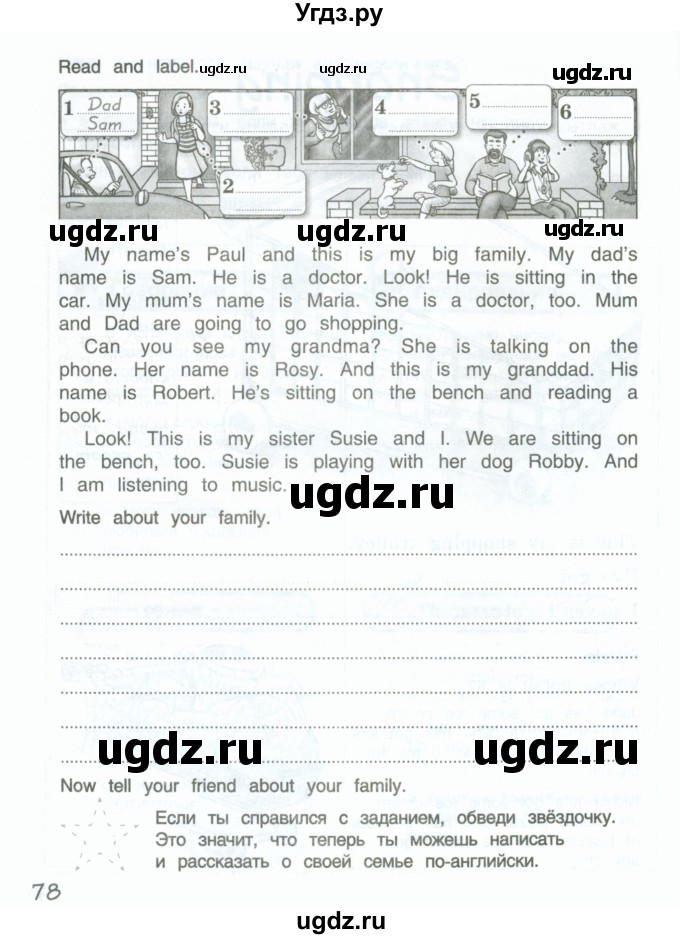 Угдз.ру
Read and label.
ugdz.ru
ugdz.ru
1 Dad
Sam
2
3
4
5
6
ugdz.ru
ugdz.ru
ugdz.ru
My name's Paul and this is my big family. My dad's
name is Sam. He is a doctor. Look! He is sitting in the
car. My mum's name is Maria. She is a doctor, too. Mum
and Dad are going to go shopping.
Can you see my grandma? She is talking on the
phone. Her name is Rosy. And this is my granddad. His
name is Robert. He's sitting on the bench and reading a
book.
Look! This is my sister Susie and I. We are sitting on
the bench, too. Susie is playing with her dog Robby. And
I am listening to music.
ugdz.ru
Write about your family.
ugdz.ru
ugdz.ru
Now tell your friend about your family.
Если ты справился с заданием, обведи звёздочку.
Это значит, что теперь ты можешь написать
и рассказать о своей семье по-английски.
78
ugdz.ru